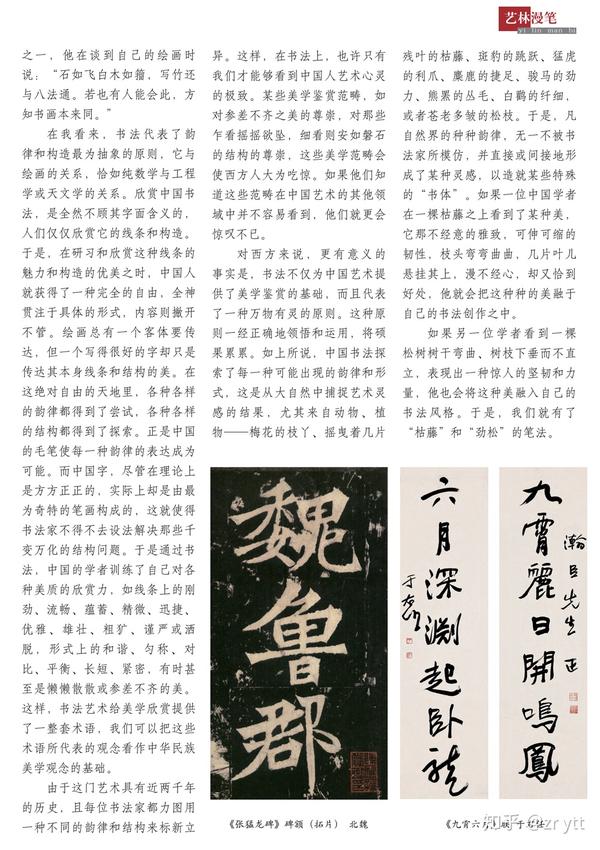 艺林漫笔
yi lin man bi
之一，他在谈到自己的绘画时
说：“石如飞白木如籀，写竹还
与八法通。若也有人能会此，方
知书画本来同。”
在我看来，书法代表了韵
律和构造最为抽象的原则，它与
绘画的关系，恰如纯数学与工程
学或天文学的关系。欣赏中国书
法，是全然不顾其字面含义的，
人们仅仅欣赏它的线条和构造。
于是，在研习和欣赏这种线条的
魅力和构造的优美之时，中国人
就获得了一种完全的自由，全神
贯注于具体的形式，内容则撇开
不管。绘画总有一个客体要传
达，但一个写得很好的字却只是
传达其本身线条和结构的美。在
这绝对自由的天地里，各种各样
的韵律都得到了尝试，各种各样
的结构都得到了探索。正是中国
的毛笔使每一种韵律的表达成为
可能。而中国字，尽管在理论上
是方方正正的，实际上却是由最
为奇特的笔画构成的，这就使得
书法家不得不去设法解决那些千
变万化的结构问题。于是通过书
法，中国的学者训练了自己对各
种美质的欣赏力，如线条上的刚
劲、流畅、蕴蓄、精微、迅捷、
优雅、雄壮、粗犷、谨严或洒
脱，形式上的和谐、匀称、对
比、平衡、长短、紧密，有时甚
至是懒懒散散或参差不齐的美。
这样，书法艺术给美学欣赏提供
了一整套术语，我们可以把这些
术语所代表的观念看作中华民族
美学观念的基础。
由于这门艺术具有近两千年
的历史，且每位书法家都力图用
一种不同的韵律和结构来标新立
异。这样，在书法上，也许只有
我们才能够看到中国人艺术心灵
的极致。某些美学鉴赏范畴，如
对参差不齐之美的尊崇，对那些
乍看摇摇欲坠，细看则安如磐石
的结构的尊崇，这些美学范畴会
使西方人大为吃惊。如果他们知
道这些范畴在中国艺术的其他领
域中并不容易看到，他们就更会
惊叹不已。
对西方来说，更有意义的
事实是，书法不仅为中国艺术提
供了美学鉴赏的基础，而且代表
了一种万物有灵的原则。这种原
则一经正确地领悟和运用，将硕
果累累。如上所说，中国书法探
索了每一种可能出现的韵律和形
式，这是从大自然中捕捉艺术灵
感的结果，尤其来自动物、植
物——梅花的枝丫、摇曳着几片
残叶的枯藤、斑豹的跳跃、猛虎
的利爪、麋鹿的捷足、骏马的劲
力、熊罴的丛毛、白鹤的纤细，
或者苍老多皱的松枝。于是，凡
自然界的种种韵律，无一不被书
法家所模仿，并直接或间接地形
成了某种灵感，以造就某些特殊
的“书体”。如果一位中国学者
在一棵枯藤之上看到了某种美，
它那不经意的雅致，可伸可缩的
韧性，枝头弯弯曲曲，几片叶儿
悬挂其上，漫不经心，却又恰到
好处，他就会把这种种的美融于
自己的书法创作之中。
如果另一位学者看到一棵
松树树干弯曲、树枝下垂而不直
立，表现出一种惊人的坚韧和力
量，他也会将这种美融入自己的
书法风格。于是，我们就有了
“枯藤”和“劲松”的笔法。
魏鲁郡
九霄丽日开鸣凤
瀚臣先生正
六月深渊起卧龙
于右任
《张猛龙碑》碑额（拓片） 北魏
《九霄六月》联 于右任
知乎 @zrytt